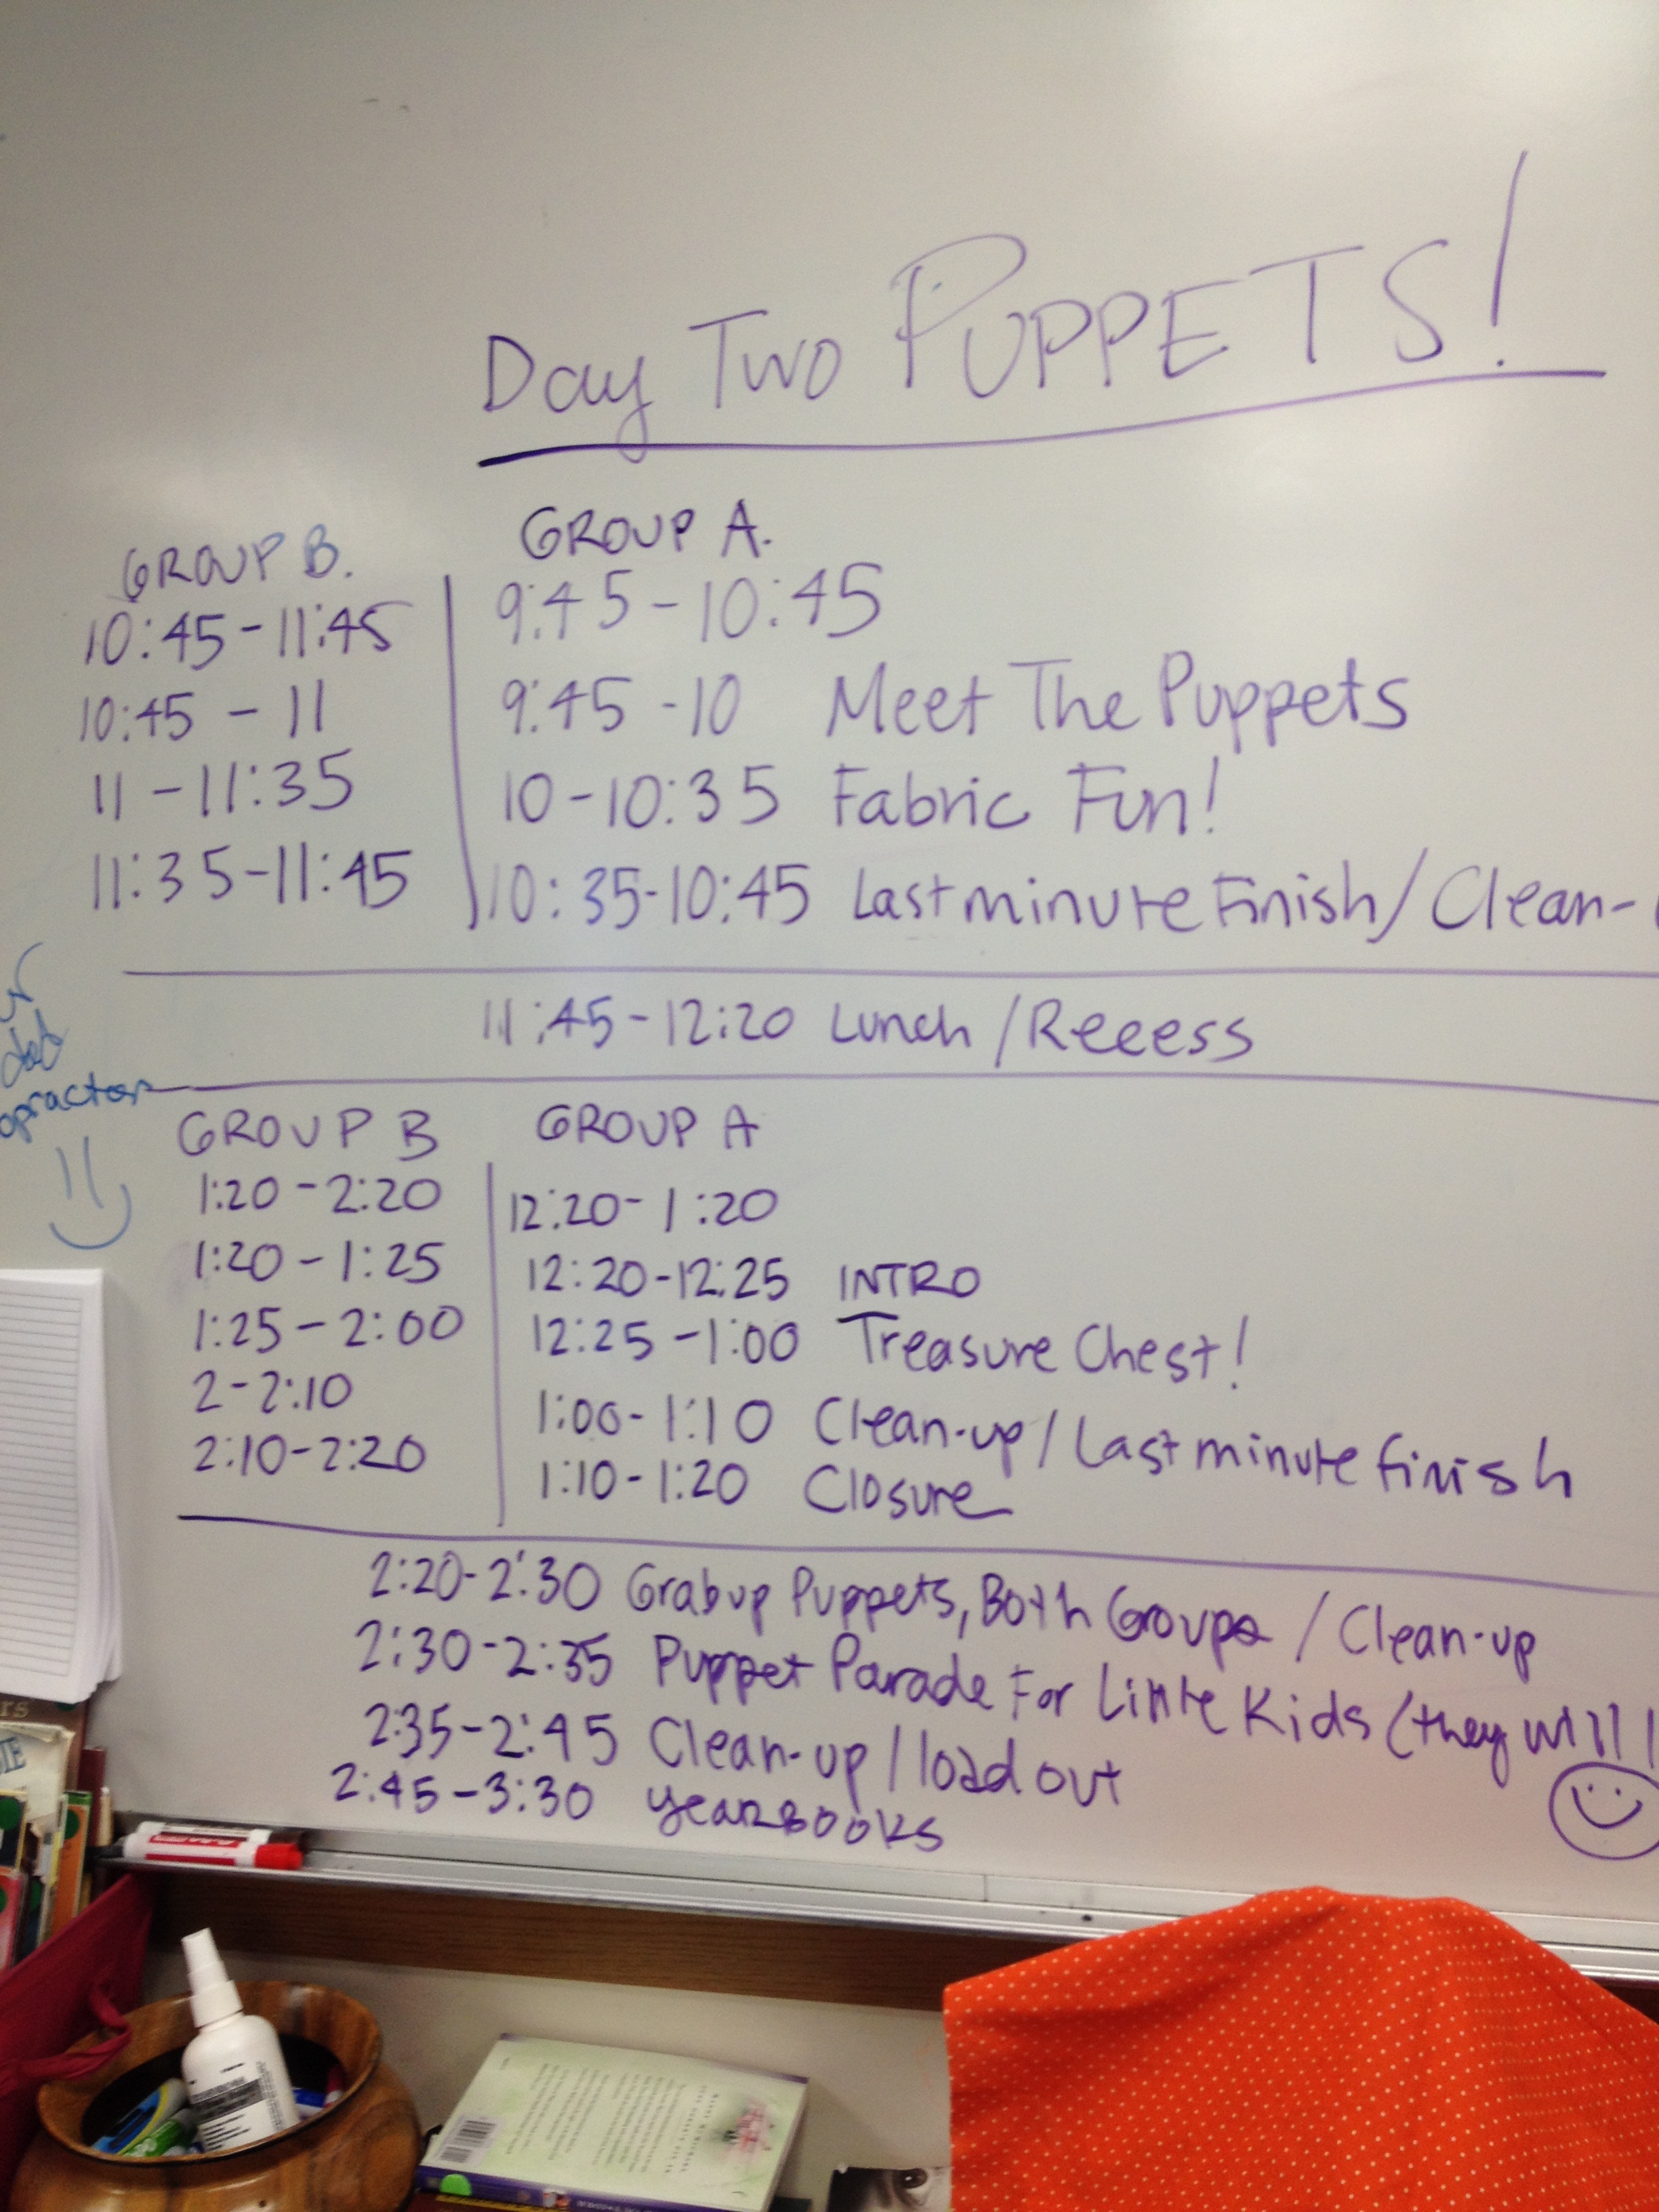 Day Two PUPPETS!
GROUP B. GROUP A.
10:45-11:45 9:45-10:45
10:45 - 11 9:45-10 Meet The Puppets
11-11:35 10-10:35 Fabric Fun!
11:35-11:45 10:35-10:45 Last minute Finish/Clean-
11:45-12:20 Lunch/Reeess
GROUP B GROUP A
1:20-2:20 12:20-1:20
1:20-1:25 12:20-12:25 INTRO
1:25-2:00 12:25-1:00 Treasure Chest!
2-2:10 1:00-1:10 Clean-up/Last minute finish
2:10-2:20 1:10-1:20 Closure
2:20-2:30 Grab up Puppets, Both Groups / Clean-up
2:30-2:35 Puppet Parade For Little Kids (they will
2:35-2:45 Clean-up/load out
2:45-3:30 yearbooks